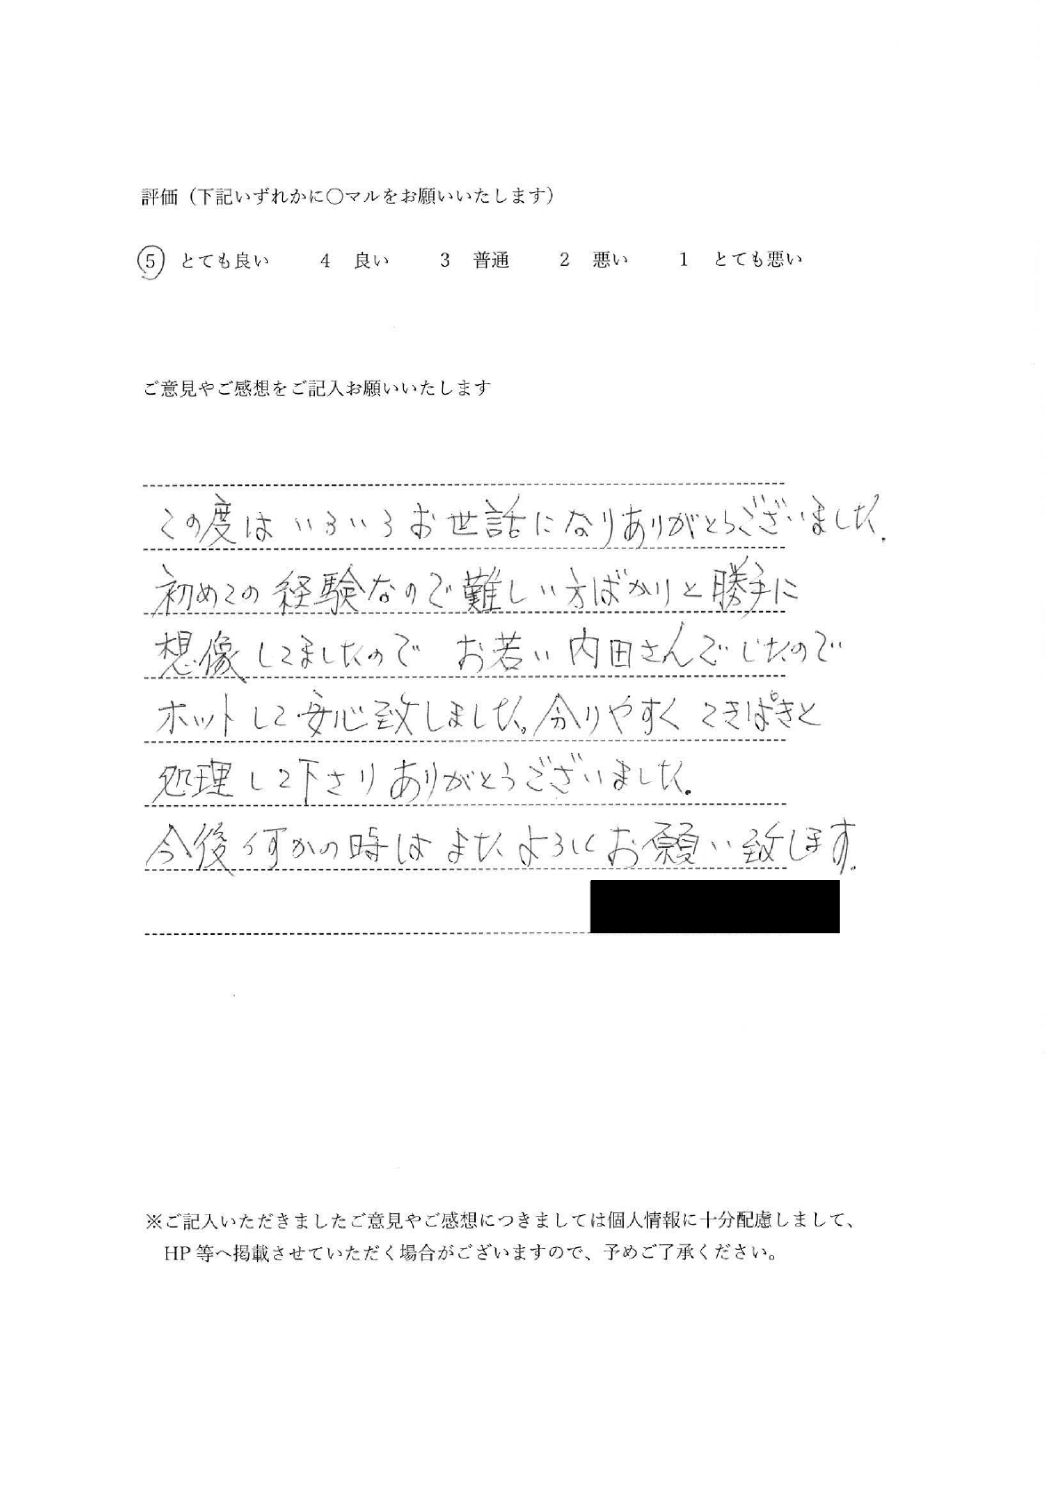 評価（下記いずれかに〇マルをお願いいたします）
5 とても良い 4 良い 3 普通 2 悪い 1 とても悪い
ご意見やご感想をご記入お願いいたします
この度は いろいろ お世話になりありがとうございました.
初めての経験なので難しい方ばかりと勝手に
想像してましたので お若い内田さんでしたので
ホットして安心致しました。分りやすく てきぱきと
処理して下さり ありがとうございました.
今後何かの時は また よろしくお願い致します.
※ご記入いただきましたご意見やご感想につきましては個人情報に十分配慮しまして、
HP 等へ掲載させていただく場合がございますので、予めご了承ください。